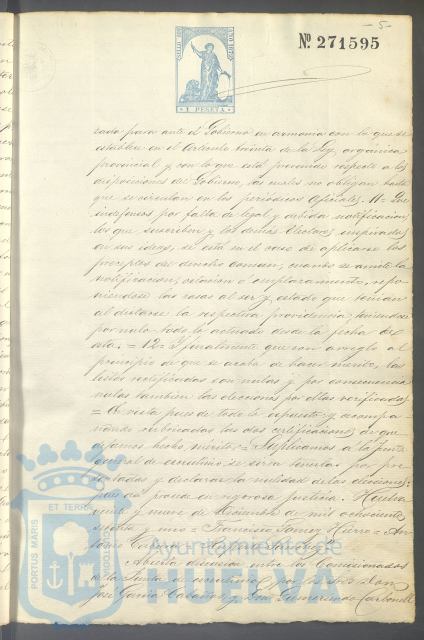 - 5 -
Nº 271595
1 PESETA
rada para ante el Gobierno en armonia con lo que se
establece en el Articulo treinta de la Ley orgánica
provincial y con lo que está prevenido respecto a las
disposiciones del Gobierno, las cuales no obligan hasta
que se circulan en los periodicos oficiales. 11= Que
indefensos por falta de legal y debida notificacion,
los que suscriben y los demás electores, inspirados
en sus ideas, se está en el caso de aplicarse los
preceptos del derecho comun, cuando se omite la
notificacion, citacion ó emplazamiento, repo-
niendose las cosas al ser y estado que tenian
al dictarse la respectiva providencia, teniendose
por nulo todo lo actuado desde la fecha de
esta. = 12= Y finalmente que con arreglo al
principio de que se acaba de hacer merito, las
listas rectificadas son nulas y por consecuencia
nulas tambien las elecciones por ellas verificadas
= En vista pues de todo lo expuesto y acompa-
ñando rubricadas las dos certificaciones de que
dejamos hecho mérito = Suplicamos a la Junta
general de escrutinio se sirva tenerlas por pre-
sentadas y declarar la nulidad de las elecciones
pues asi procede en rigorosa justicia. Huelva
veinte y nueve de Diciembre de mil ochocientos
setenta y uno = Francisco Gomez Hierro = An-
Abierta discusion entre los Comisionados
de la Junta de escrutinio, por los Sres. Don
José Garcia Cabañas y Don Gumersindo Carbonell
PORTUS MARIS
ET TERRÆ
CUSTODIA
Ayuntamiento de
HUELVA